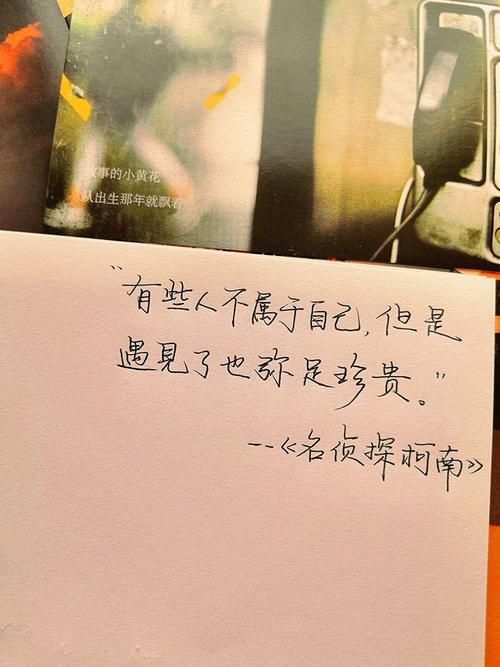 故事的小黄花
从出生那年就飘着
“有些人不属于自己，但是
遇見了也弥足珍贵。”
--《名侦探柯南》